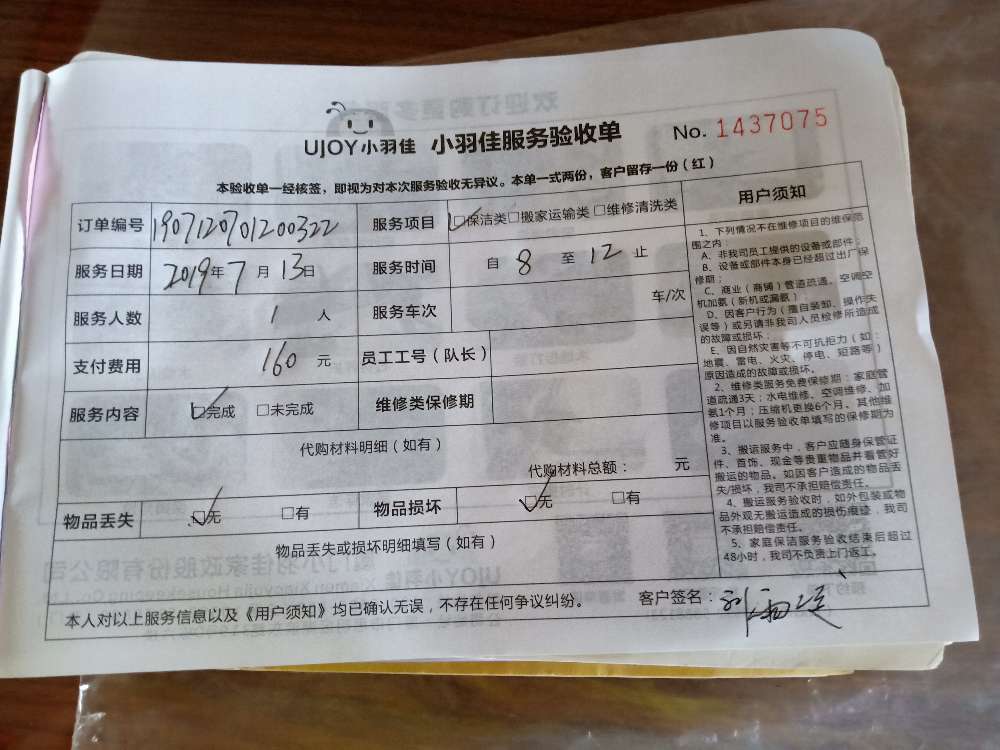 UJOY小羽佳 小羽佳服务验收单 No. 1437075
本验收单一经核签，即视为对本次服务验收无异议。本单一式两份，客户留存一份（红）
订单编号 1907120701200322 服务项目 保洁类 搬家运输类 维修清洗类
服务日期 2019年7月13日 服务时间 自 8 至 12 止
服务人数 1 人 服务车次 车/次
支付费用 160 元 员工工号（队长）
服务内容 完成 未完成 维修类保修期
代购材料明细（如有）
代购材料总额： 元
物品丢失 无 有 物品损坏 无 有
物品丢失或损坏明细填写（如有）
本人对以上服务信息以及《用户须知》均已确认无误，不存在任何争议纠纷。 客户签名：
用户须知
1、下列情况不在维修项目的维保范
围之内：
A、非我司员工提供的设备或部件；
B、设备或部件本身已经超过出厂保
修期；
C、商业（商铺）管道疏通，空调空
机加氨（新机或漏氨）
D、因客户行为（擅自装卸、操作失
误等）或另请非我司人员检修所造成
的故障或损坏；
E、因自然灾害等不可抗拒力（如：
地震、雷电、火灾、停电、短路等）
原因造成的故障或损坏。
2、维修类服务免费保修期：家庭管
道疏通3天；水电维修、空调维修、加
氨1个月；压缩机更换6个月。其他维
修项目以服务验收单填写的保修期为
准。
3、搬运服务中，客户应随身保管证
件、首饰、现金等贵重物品并看管好
搬运的物品。如因客户造成的物品丢
失/损坏，我司不承担赔偿责任。
4、搬运服务验收时，如外包装或物
品外观无搬运造成的损伤痕迹，我司
不承担赔偿责任。
5、家庭保洁服务验收结束后超过
48小时，我司不负责上门返工。